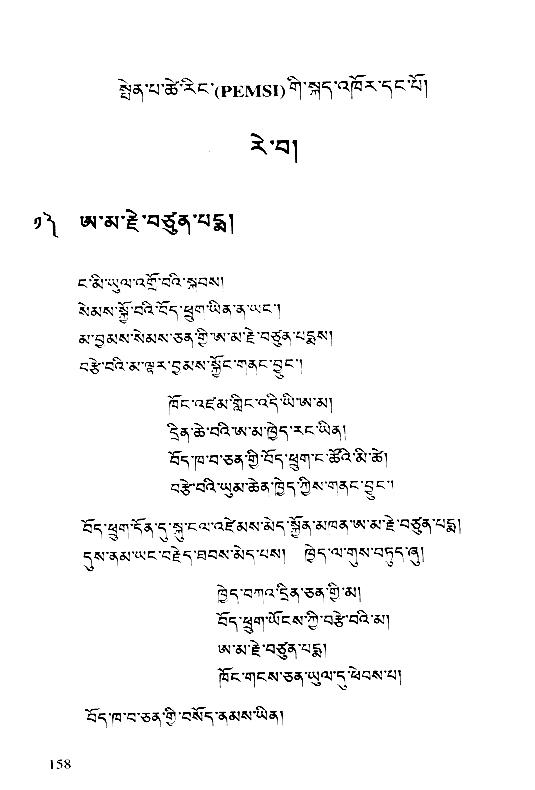 སྤེན་པ་ཚེ་རིང་(PEMSI)གི་སྐད་འཁོར་དང་པོ།
རེ་བ།
༡༽ ཨ་མ་རྗེ་བཙུན་པདྨ།
ང་མི་ཡུལ་འགྲོ་བའི་སྐབས།
སེམས་སྐྱོ་བའི་བོད་ཕྲུག་ཡིན་ན་ཡང་།
མ་བྱམས་སེམས་ཅན་གྱི་ཨ་མ་རྗེ་བཙུན་པདྨས།
བརྩེ་བའི་མ་ལྟར་བྱམས་སྐྱོང་གནང་བྱུང་།
ཁོང་འཛམ་གླིང་འདི་ཡི་ཨ་མ།
དྲིན་ཆེ་བའི་ཨ་མ་ཁྱེད་རང་ཡིན།
བོད་ཁ་བ་ཅན་གྱི་བོད་ཕྲུག་ང་ཚོའི་མི་ཚེ།
བརྩེ་བའི་ཡུམ་ཆེན་ཁྱེད་ཀྱིས་གནང་བྱུང་།
བོད་ཕྲུག་དོན་དུ་སྐུ་ངལ་འཛེམས་མེད་སྐྱོན་མཁན་ཨ་མ་རྗེ་བཙུན་པདྨ།
དུས་ནམ་ཡང་བརྗེད་ཐབས་མེད་པས། ཁྱེད་ལ་གུས་བཏུད་ཞུ།
ཁྱེད་བཀའ་དྲིན་ཅན་གྱི་མ།
བོད་ཕྲུག་ཡོངས་ཀྱི་བརྩེ་བའི་མ།
ཨ་མ་རྗེ་བཙུན་པདྨ།
ཁོང་གངས་ཅན་ཡུལ་དུ་ཕེབས་པ།
བོད་ཁ་བ་ཅན་གྱི་བསོད་ནམས་ཡིན།
158